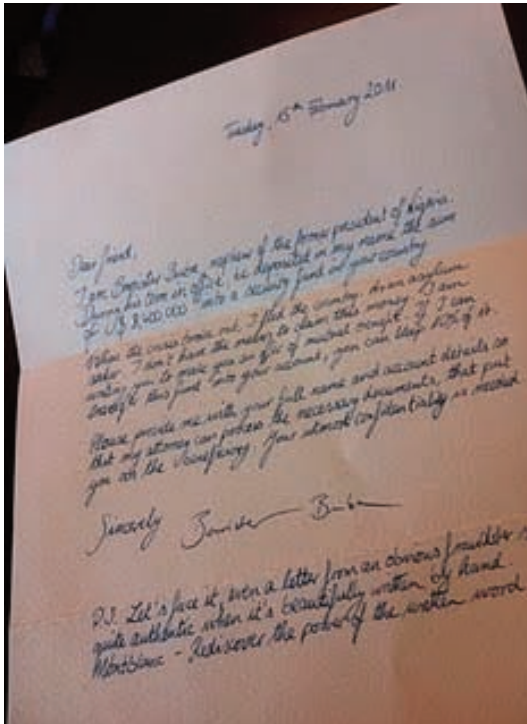 Tuesday, 15th February 2011
Dear friend,
I am Barrister, nephew of the former president of Nigeria.
During his term in office, he deposited in my name the sum
of US$ 8,400,000 into a security fund in your country.
When the crisis broke out, I fled the country. As an asylum
seeker I don't have the means to claim this money. I am
writing you to make you an offer of mutual benefit. If I can
transfer this fund into your account, you can keep of it.
Please provide me with your full name and account details so
that my attorney can process the necessary documents, that put
you as the beneficiary. Your utmost confidentiality is needed.
Sincerely
P.S. Let's face it, even a letter from an obvious fraudster is
quite authentic when it's beautifully written by hand.
Montblanc - Rediscover the power of the written word.